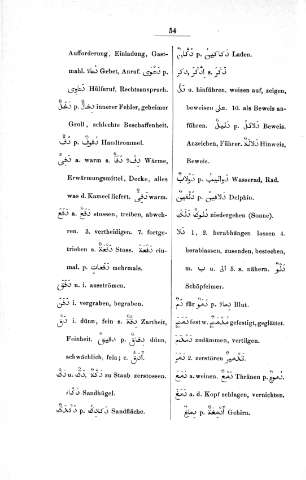 54
Aufforderung, Einladung, Gast-
mahl. دعاء Gebet, Anruf. دَعْوَى p.
دَعَاوِى Hülferuf, Rechtsanspruch.
p. innerer Fehler, geheimer
Groll, schlechte Beschaffenheit.
دُفّ p. دُفُوف Handtrommel.
a. warm s. Wärme,
Erwärmungsmittel, Decke, alles
was d. Kameel liefert. warm.
دَفَعَ a stossen, treiben, abweh-
ren. 3. vertheidigen. 7. fortge-
trieben s. Stoss. دَفْعَة ein-
mal. p. دفعات mehrmals.
u. i. ausströmen.
دَفَنَ i. vergraben, begraben.
دَقَّ i. dünn, fein s. Zartheit,
Feinheit. دَقِيق p. دقاق dünn,
schwächlich, fein; s.
u. zu Staub zerstossen.
Sandhügel.
p. Sandfläche.
دُكَّان p. دَكَاكِين Laden.
ذِكْر s. ذكر
دَلَّ u. hinführen, weisen auf, zeigen,
beweisen 10. als Beweis an-
führen. دَلِيل p. Beweis.
Anzeichen, Führer. Hinweis,
Beweis.
دُولَاب p. دَوَالِيب Wasserrad, Rad.
دُلْفِين p. دَلَافِين Delphin.
دَلَكَ دُلُوك niedergehen (Sonne).
دَلَا 1, 2. herabhängen lassen 4.
herablassen, zusenden, bestechen,
m. ب u. الى 5. s. nähern. دَلْو
Schöpfeimer.
دَم für p. دِمَاء Blut.
fest w. gefestigt, geglättet.
zudämmen, vertilgen.
دمر 2. zerstören تَدْمِير
دَمَعَ a. weinen. دَمْع Thränen p. دُمُوع
دَمَغَ a. d. Kopf schlagen, vernichten.
دِمَاغ p. أَدْمِغَة Gehirn.